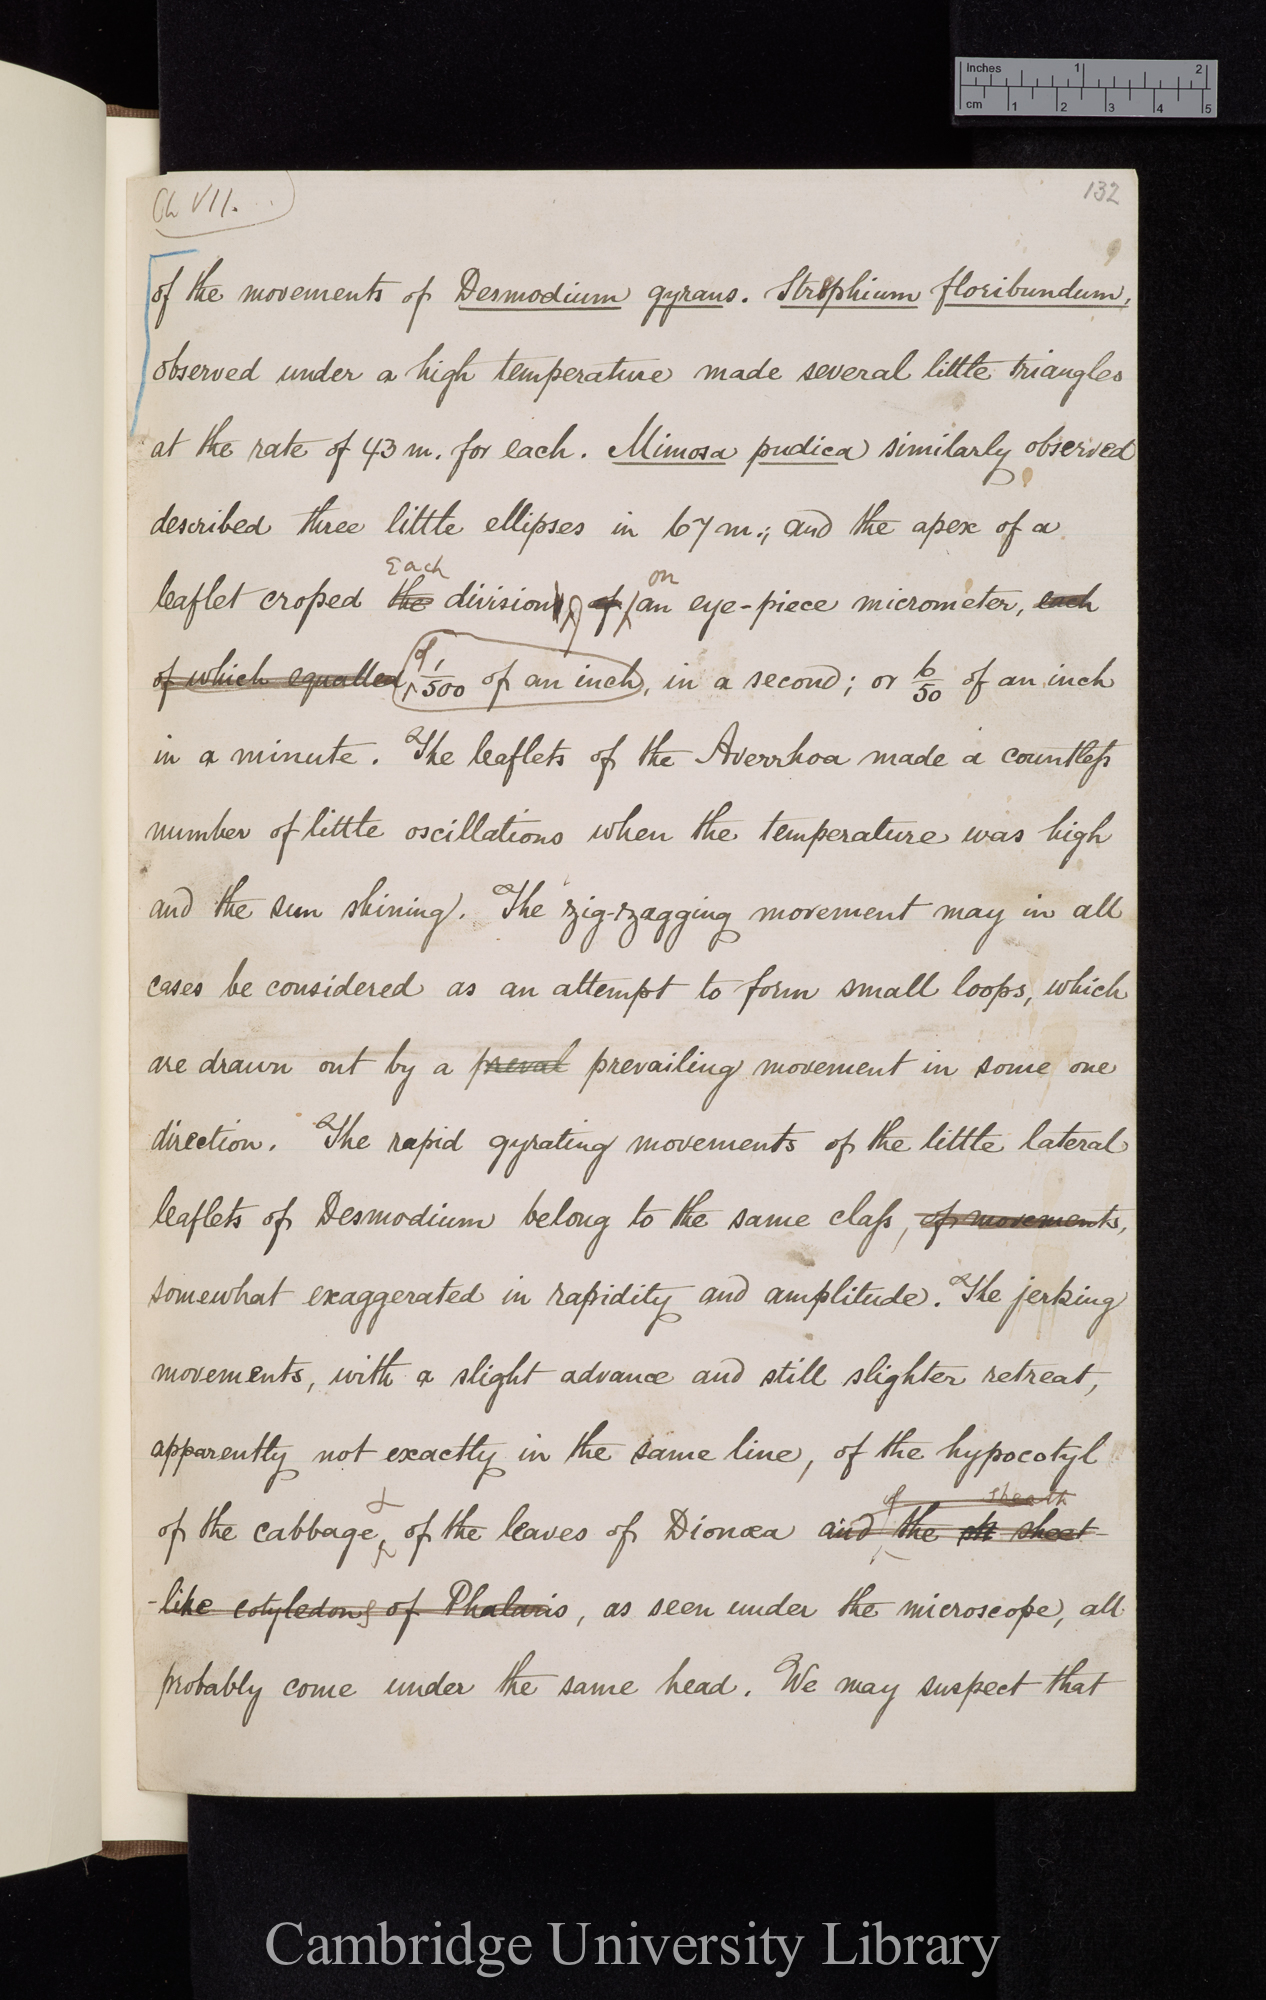 Inches 1 2
cm 1 2 3 4 5
Ch VII.
132
of the movements of Desmodium gyrans. Strephium floribundum,
observed under a high temperature made several little triangles
at the rate of 43 m. for each. Mimosa pudica similarly observed
described three little ellipses in 67 m.; and the apex of a
Each on
leaflet croped the division of an eye-piece micrometer, each
of which equalled of 1/500 of an inch, in a second; or 6/50 of an inch
in a minute. The leaflets of the Averrhoa made a countless
number of little oscillations when the temperature was high
and the sun shining. The zig-zagging movement may in all
cases be considered as an attempt to form small loops, which
are drawn out by a preval prevailing movement in some one
direction. The rapid gyrating movements of the little lateral
leaflets of Desmodium belong to the same class, of movements,
somewhat exaggerated in rapidity and amplitude. The jerking
movements, with a slight advance and still slighter retreat,
apparently not exactly in the same line, of the hypocotyl
& of sheath
of the cabbage, of the leaves of Dionæa and the sheat
-like cotyledons of Phalaris, as seen under the microscope, all
probably come under the same head. We may suspect that
Cambridge University Library